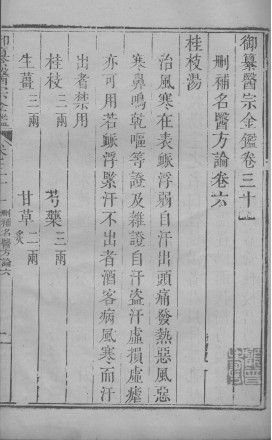 御纂醫宗金鑑卷三十一
刪補名醫方論卷六
桂枝湯
治風寒在表脈浮弱自汗出頭痛發熱惡風惡
寒鼻鳴乾嘔等證及雜證自汗盜汗虛損虛瘧
亦可用若脈浮緊汗不出者酒客病風寒而汗
出者禁用
桂枝三兩 芍藥三兩
生薑三兩 甘草二兩炙
刪補名醫方論六